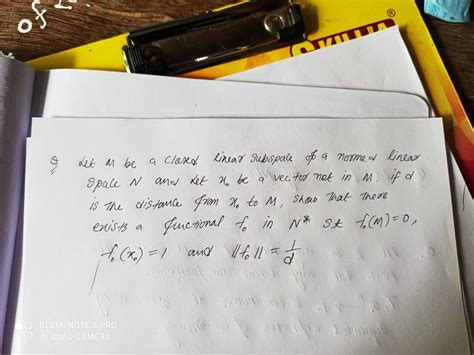 Q Let M be a closed linear subspace of a normed linear
space N and let x₀ be a vector not in M. if d
is the distance from x₀ to M, show that there
exists a functional f₀ in N* s.t f₀(M)=0,
f₀(x₀)=1 and ||f₀|| = 1/d
REDMI NOTE 8 PRO
AI QUAD CAMERA